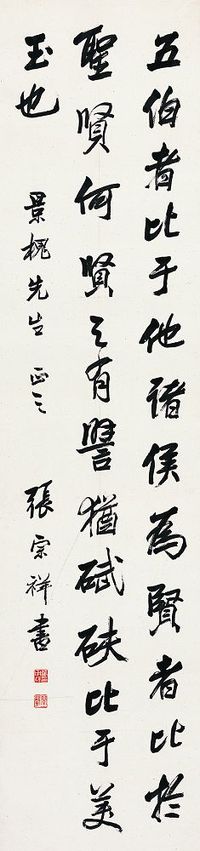 五伯者比于他諸侯為賢者比於
聖賢何賢之有譬猶碔砆比于美
玉也
景槐先生正之
張宗祥書